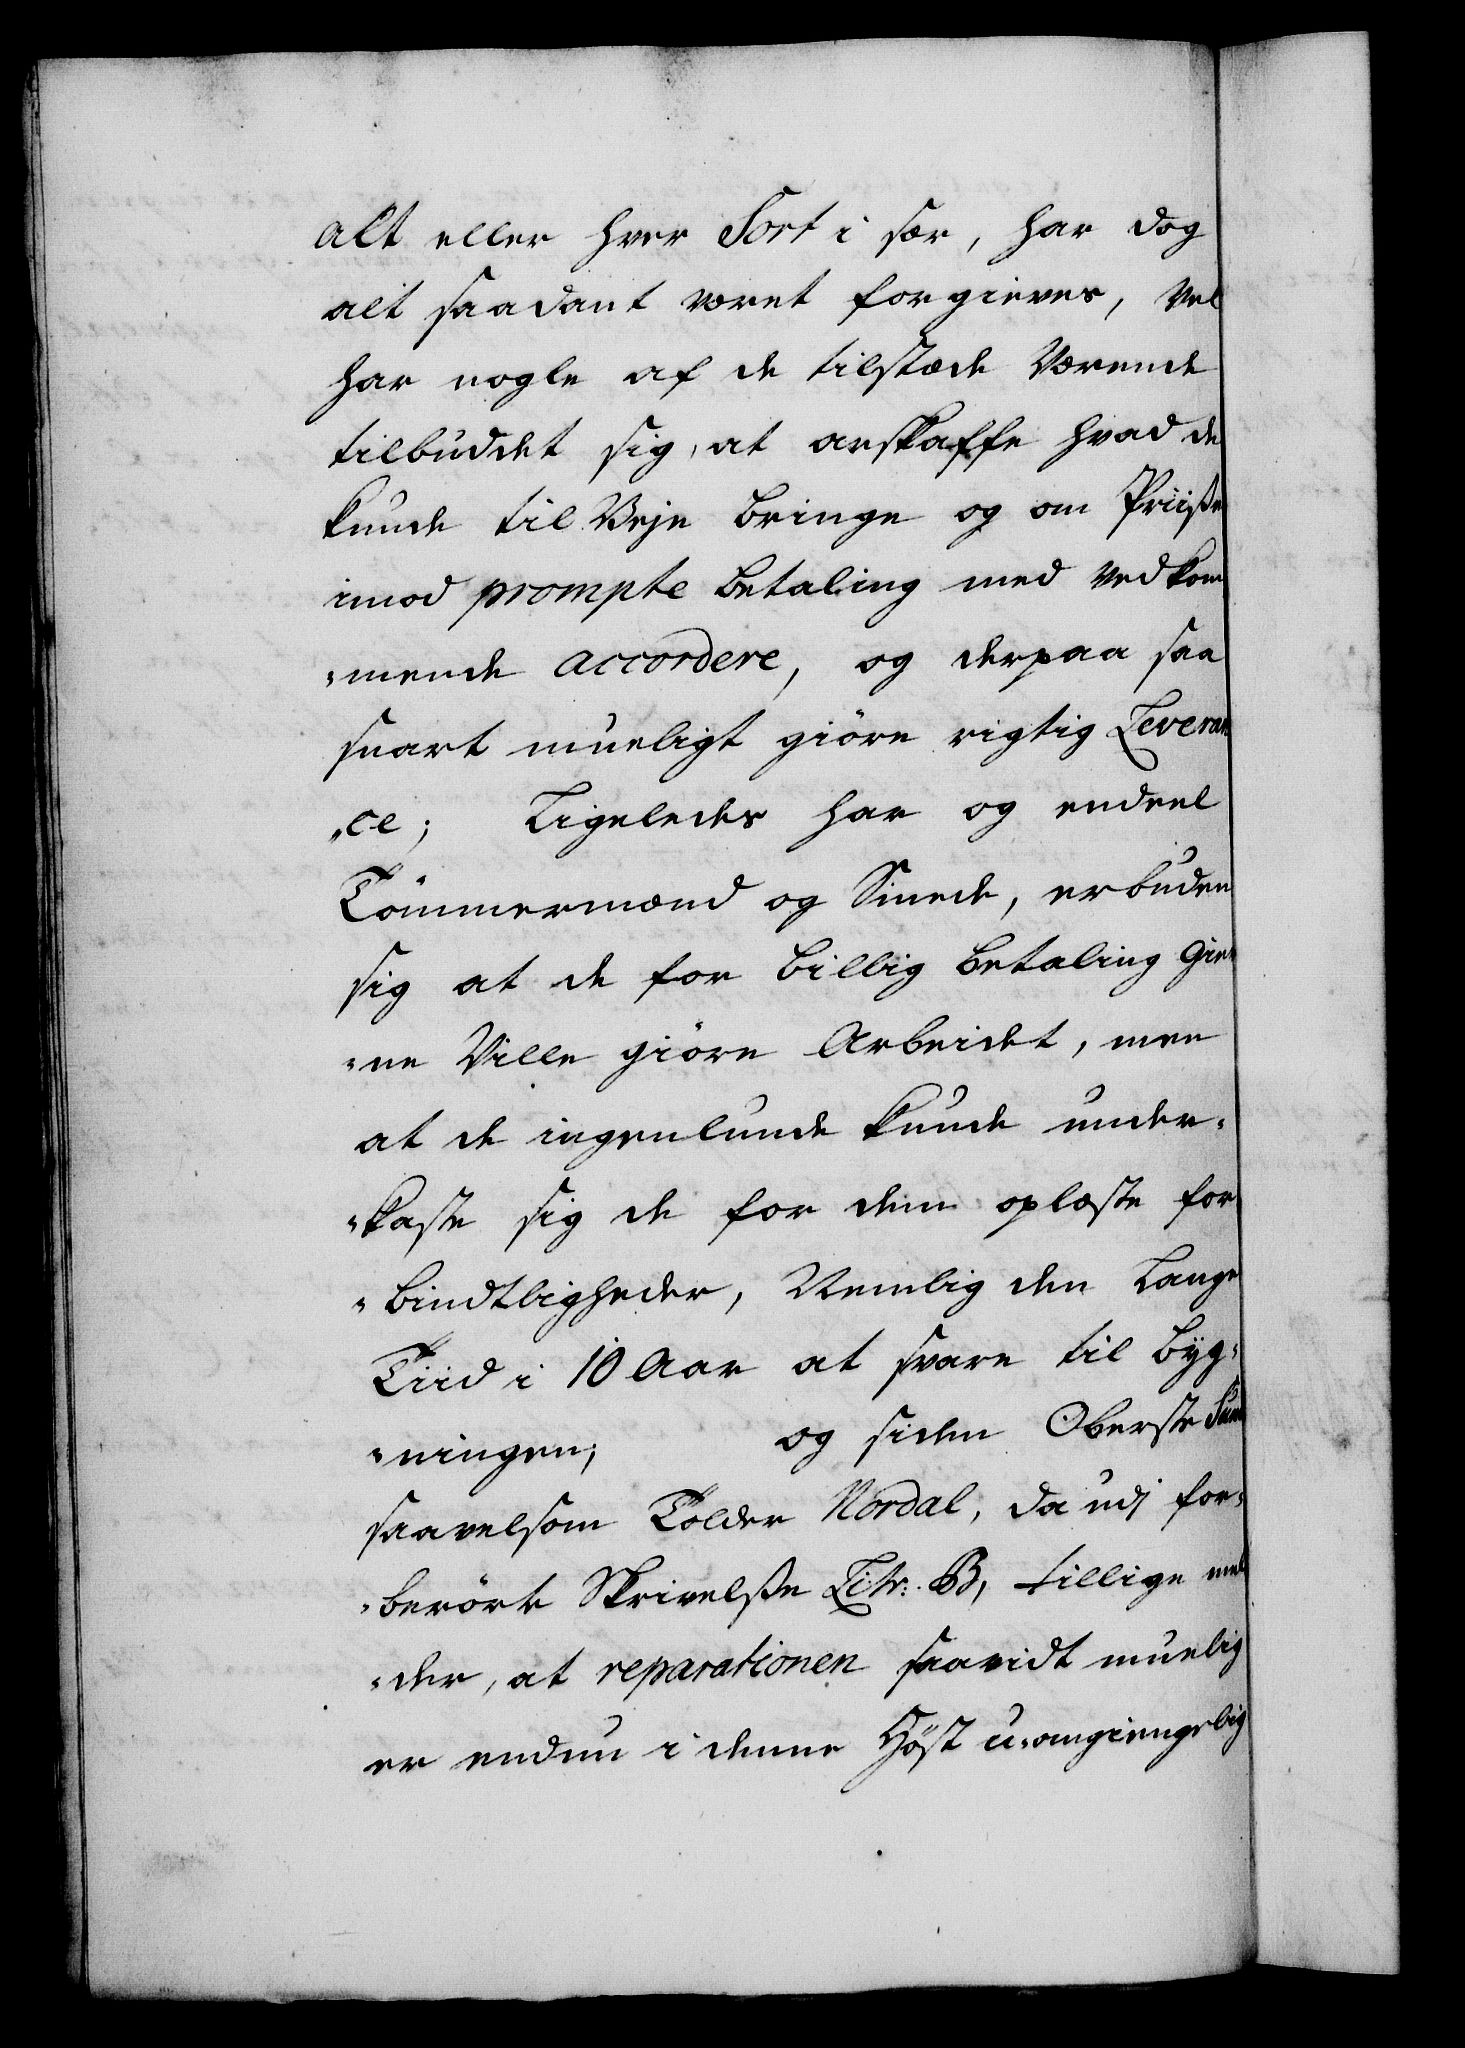 alt eller hver Sort i sær, har dog
alt saadant været forgieves, Vel
har nogle af de tilstæde Værende
tilbuddet sig, at anskaffe hvad de
kunde til Veje bringe og om Priisen
imod prompte betaling med vedkom
-mende accordere, og derpaa saa
snart mueligt giöre rigtig Leveran
-ce; Ligeledes har og endeel
Tömmermænd og Smede, erbuden
sig at de for billig betaling Gier
-ne Ville giöre Arbeidet, men
at de ingenlunde kunde under-
-kaste sig de for dem oplæste for
-bindtligheder, Nemlig den Lange
Tiid i 10 Aar at svare til byg-
-ningen; og siden Oberste
saavelsom Tolder Nordal, da udj for-
-berörte Skrivelße Litr: B, tillige mel
-der, at reparationen saavidt muelig
er endnu i denne Höst u-omgiengelig